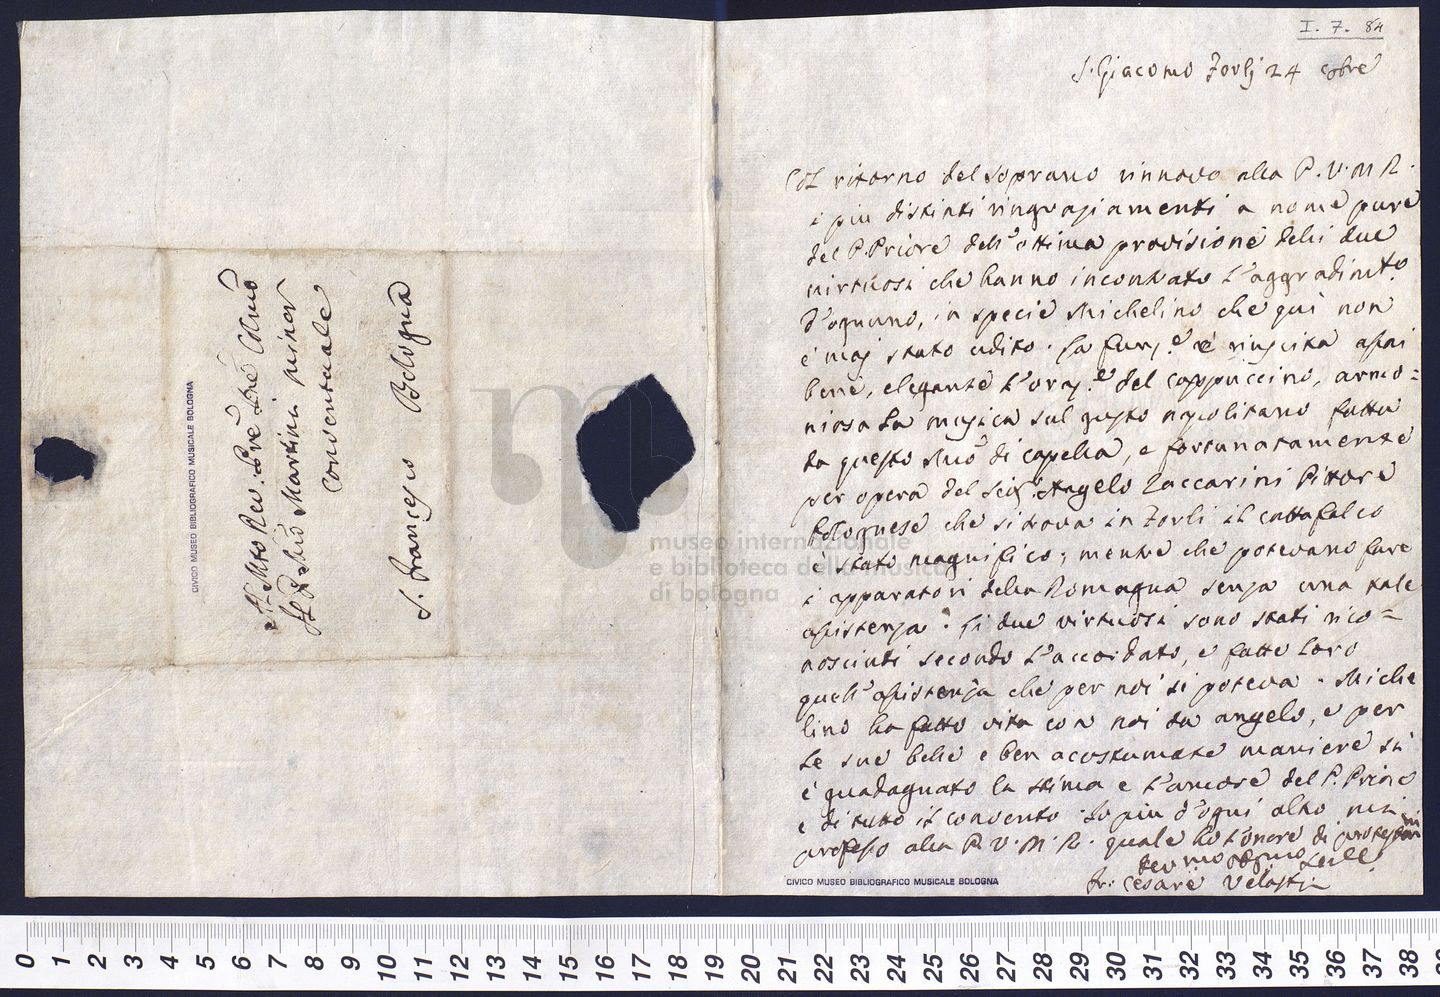 I. 7. 84
S. Giacomo Forlj 24
Col ritorno del soprano rinnovo alla P. V. M. R.
i piu distinti ringraziamenti a nome pure
del P. Priore dell'ottima provisione delli due
virtuosi che hanno incontrato l'aggradim.to
d'ognuno, in specie Michelino che quì non
è maj stato udito. La funz.e è riuscita assai
bene, elegante l'oraz.e del Cappuccino, armo=
niosa la musica sul gusto napolitano fatta
da questo Mro di capella, e fortunatamente
per opera del Angelo Zaccarini Pittore
Bolognese che si trova in Forlì il cattafalco
è stato magnifico; mentre che potevano fare
i apparatori della Romagna senza una tale
assistenza. Li due virtuosi sono stati rico=
nosciuti secondo l'accordato, e fatto loro
quell'assistenza che per noi si poteva. Miche
lino ha fatto vita con noi da angelo, e per
le sue belle e ben acostumate maniere si
è guadagnato la stima e l'amore del P. Priore
e di tutto il convento. Io piu d'ogni altro
professo alla P. V. M. R. quale ho l'onore di
Fr: Cesare
Al Mto Rev. Pre Pre
Il P. Mro Martini minor
Conventuale
S. Francesco Bologna
CIVICO MUSEO BIBLIOGRAFICO MUSICALE BOLOGNA
CIVICO MUSEO BIBLIOGRAFICO MUSICALE BOLOGNA
museo internazionale
e biblioteca della musica
di bologna
0 1 2 3 4 5 6 7 8 9 10 11 12 13 14 15 16 17 18 19 20 21 22 23 24 25 26 27 28 29 30 31 32 33 34 35 36 37 38